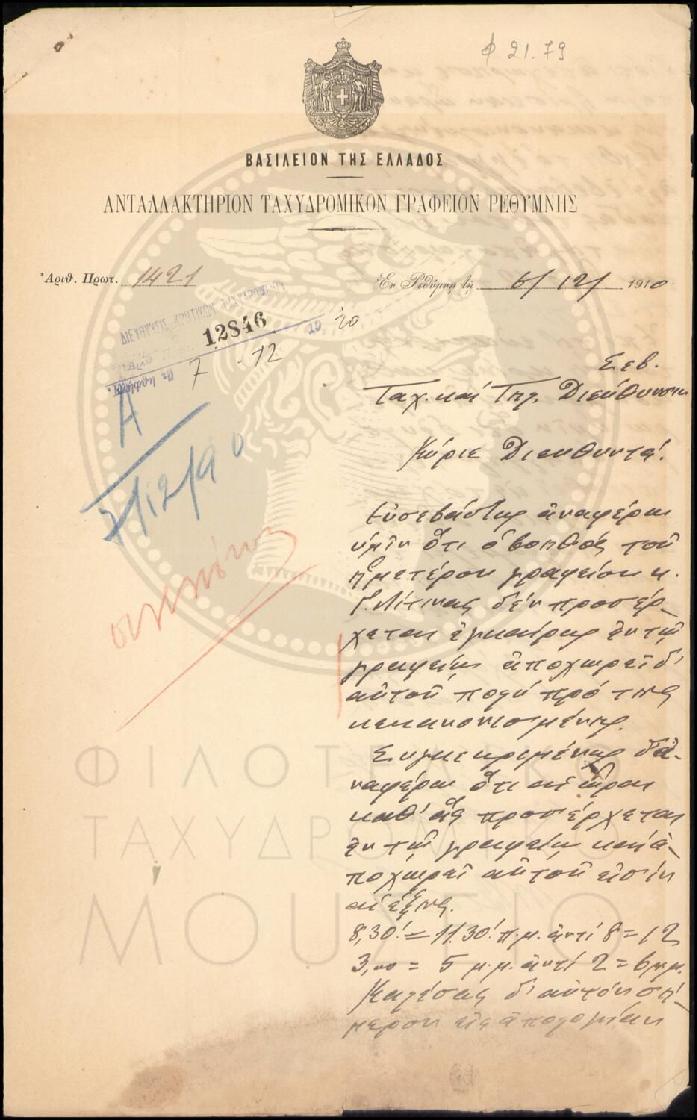 φ 21.79
ΒΑΣΙΛΕΙΟΝ ΤΗΣ ΕΛΛΑΔΟΣ
ΑΝΤΑΛΛΑΚΤΗΡΙΟΝ ΤΑΧΥΔΡΟΜΙΚΟΝ ΓΡΑΦΕΙΟΝ ΡΕΘΥΜΝΗΣ
Ἀριθ. Πρωτ. 1421
Ἐν Ρεθύμνῃ τῇ 6/12/ 1910
12846
7 - 12
Σεβ.
Ταχ. καὶ Τηλ. Διεύθυνσιν
Κύριε Διευθυντά!
Α
7/12/910
Εὐσεβάστως ἀναφέρω
ὑμῖν ὅτι ὁ βοηθὸς τοῦ
ἡμετέρου γραφείου κ.
Γ. Λίτινας δὲν προσέρ-
χεται ἐγκαίρως ἐν τῷ
γραφείῳ ἀποχωρεῖ δ'
αὐτοῦ πολὺ πρὸ τῆς
κεκανονισμένης.
Συγκεκριμένως δ' ἀ-
ναφέρω ὅτι αἱ ὧραι
καθ' ἃς προσέρχεται
ἐν τῷ γραφείῳ καὶ ἀ-
ποχωρεῖ αὐτοῦ εἰσὶν
αἱ ἑξῆς.
8,30' = 11.30' π.μ. ἀντὶ 8 = 12
3,00 = 5 μ.μ. ἀντὶ 2 = 6 μ.μ.
Καλέσας δ' αὐτὸν σή-
μερον εἰς ἀπολογίαν
ΦΙΛΟΤΕΛΙΚΟ
ΤΑΧΥΔΡΟΜΙΚΟ
ΜΟΥΣΕΙΟ